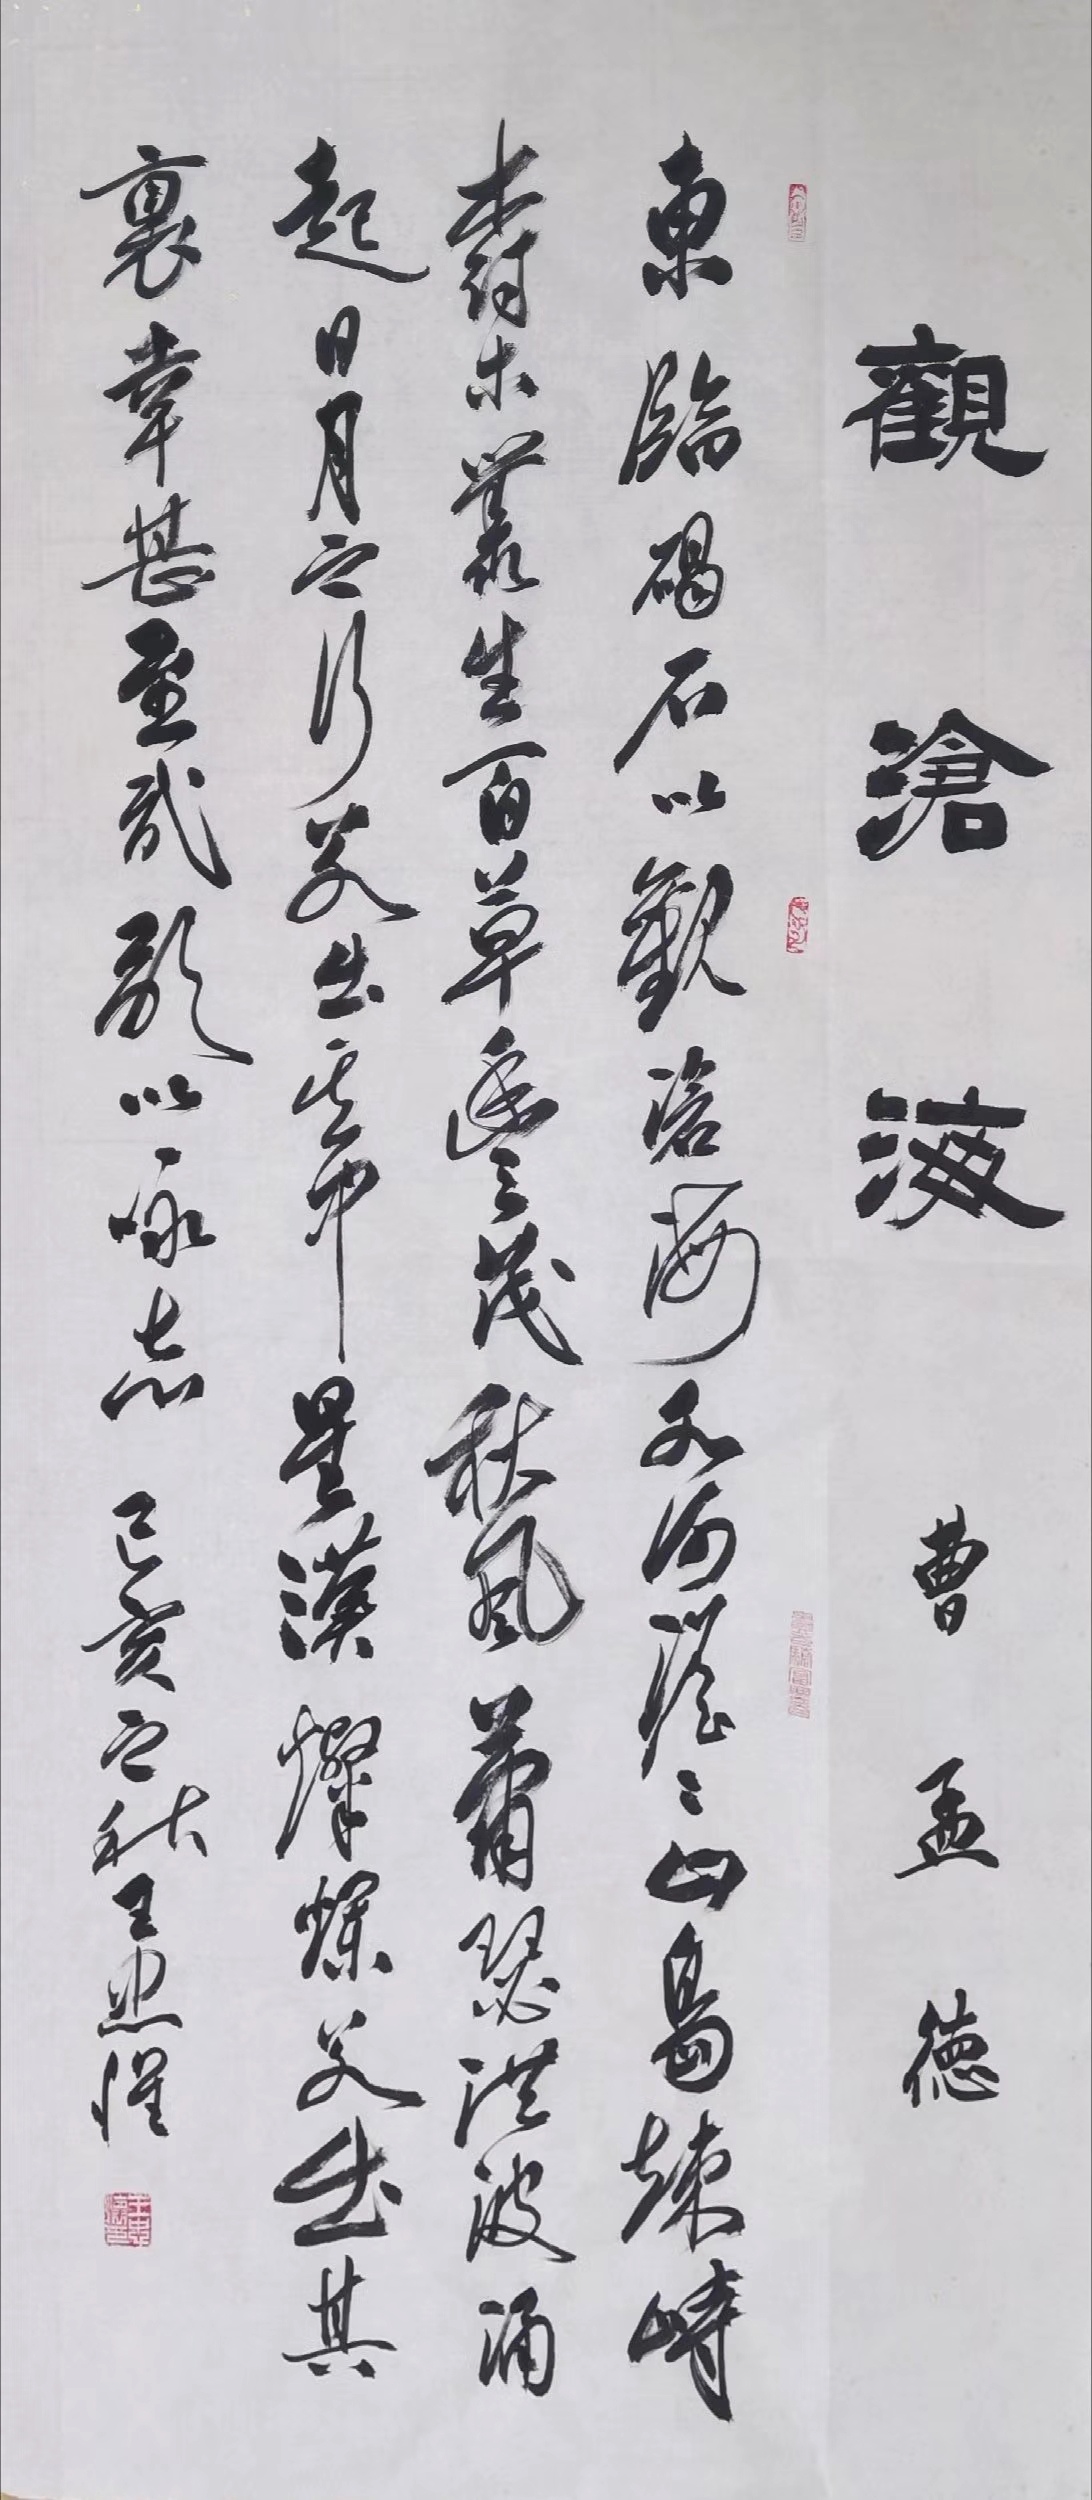 觀滄海 曹孟德
東臨碣石以觀滄海水何澹〻山島竦峙
樹木叢生百草豐茂秋風蕭瑟洪波涌
起日月之行若出其中星漢燦爛若出其
裏幸甚至哉歌以咏志 己亥之秋王忠